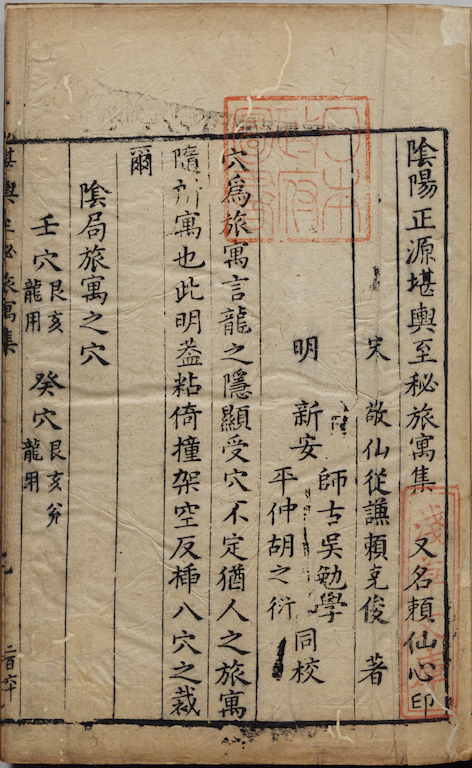 陰陽正源堪輿至秘旅寓集　又名賴仙心印
宋　敬仙從謙賴克俊　著
明　新安　師古吳勉學
平仲胡之衍　同校
穴為旅寓言龍之隱顯受穴不定猶人之旅寓
隨所寓也此明葢粘倚撞架空反揷八穴之裁
爾
陰局旅寓之穴
壬穴艮亥龍用　癸穴艮亥兌龍用
堪輿至秘旅寓集
日本政府圖書